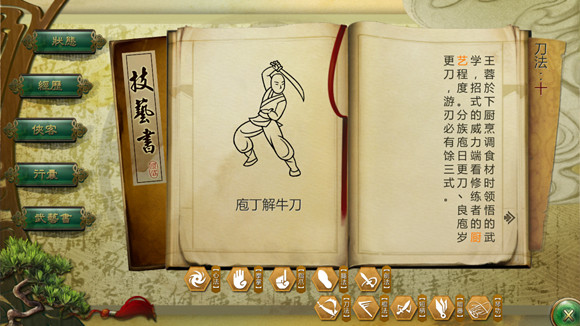 狀態
經歷
俠客
行囊
武藝書
技藝書
庖丁解牛刀
刀法：十
王蓉於下厨烹调食材时领悟的武
学，招式的威力端看修炼者的厨
艺程度。分族庖日更刀、良庖岁
更刀，游刃必有馀三式。